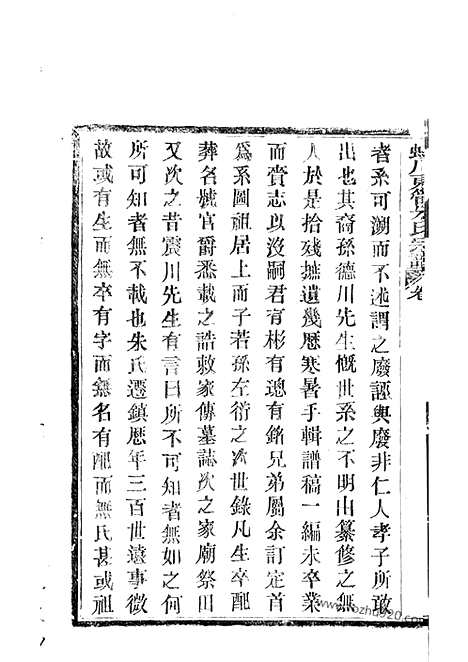 者系可溯而不述謂之廢誣與廢非仁人孝子所敢
出也其裔孫德川先生慨世系之不明由纂修之無
人於是拾殘摭遺幾歷寒暑手輯譜稿一編未卒業
而賫志以沒嗣君有彬有璁有銘兄弟屬余訂定首
爲系圖祖居上而子若孫左衍之次世錄凡生卒配
葬名壙官爵悉載之誥敕家傳墓誌次之家廟祭田
又次之昔震川先生有言曰所不可知者無如之何
所可知者無不載也朱氏遷鎭歷年三百世遠事微
故或有生而無卒有字而無名有配而無氏甚或祖
www.bozhu920.com